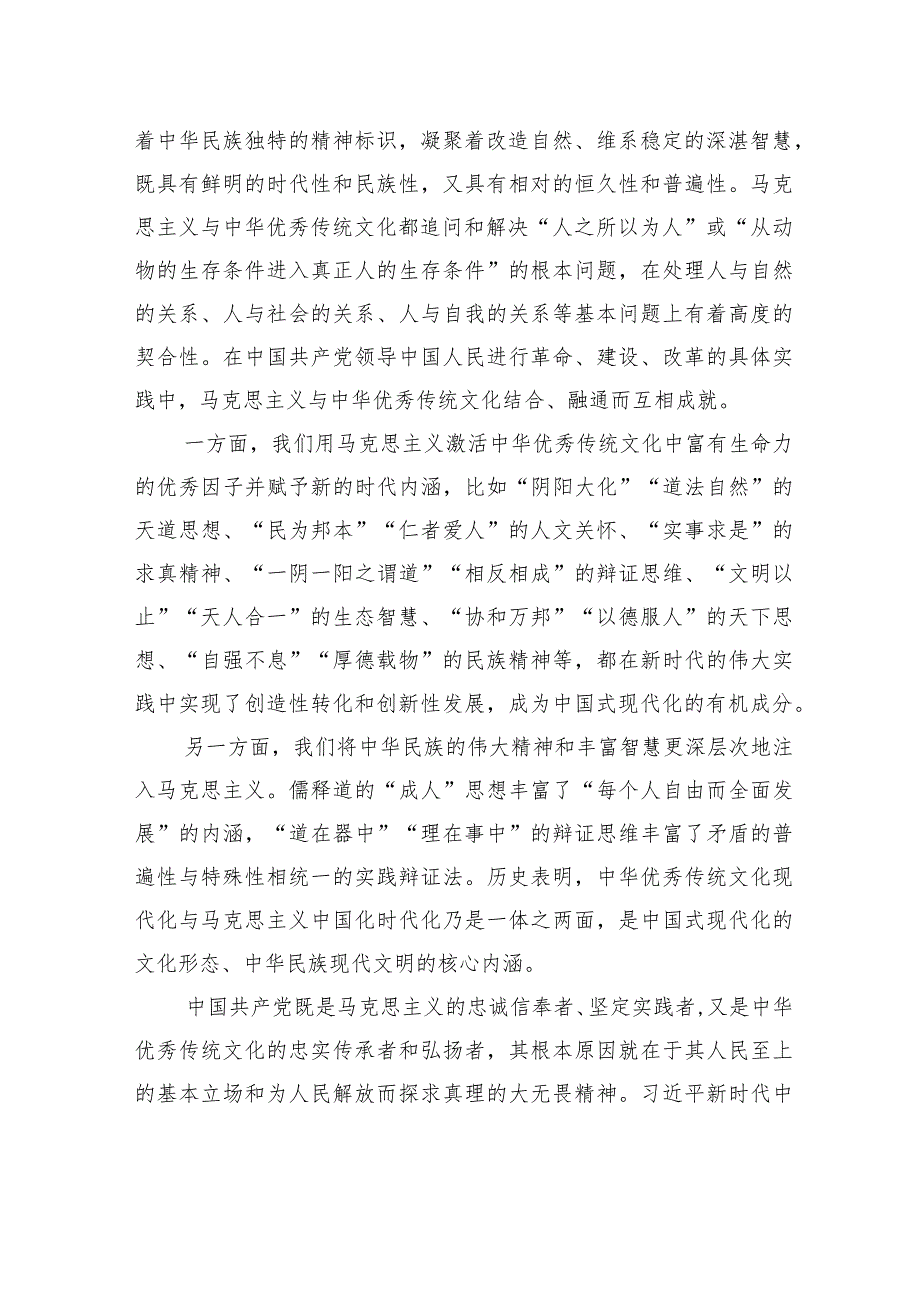 着中华民族独特的精神标识，凝聚着改造自然、维系稳定的深湛智慧，
既具有鲜明的时代性和民族性，又具有相对的恒久性和普遍性。马克
思主义与中华优秀传统文化都追问和解决“人之所以为人”或“从动
物的生存条件进入真正人的生存条件”的根本问题，在处理人与自然
的关系、人与社会的关系、人与自我的关系等基本问题上有着高度的
契合性。在中国共产党领导中国人民进行革命、建设、改革的具体实
践中，马克思主义与中华优秀传统文化结合、融通而互相成就。
一方面，我们用马克思主义激活中华优秀传统文化中富有生命力
的优秀因子并赋予新的时代内涵，比如“阴阳大化”“道法自然”的
天道思想、“民为邦本”“仁者爱人”的人文关怀、“实事求是”的
求真精神、“一阴一阳之谓道”“相反相成”的辩证思维、“文明以
止”“天人合一”的生态智慧、“协和万邦”“以德服人”的天下思
想、“自强不息”“厚德载物”的民族精神等，都在新时代的伟大实
践中实现了创造性转化和创新性发展，成为中国式现代化的有机成分。
另一方面，我们将中华民族的伟大精神和丰富智慧更深层次地注
入马克思主义。儒释道的“成人”思想丰富了“每个人自由而全面发
展”的内涵，“道在器中”“理在事中”的辩证思维丰富了矛盾的普
遍性与特殊性相统一的实践辩证法。历史表明，中华优秀传统文化现
代化与马克思主义中国化时代化乃是一体之两面，是中国式现代化的
文化形态、中华民族现代文明的核心内涵。
中国共产党既是马克思主义的忠诚信奉者、坚定实践者,又是中华
优秀传统文化的忠实传承者和弘扬者，其根本原因就在于其人民至上
的基本立场和为人民解放而探求真理的大无畏精神。习近平新时代中